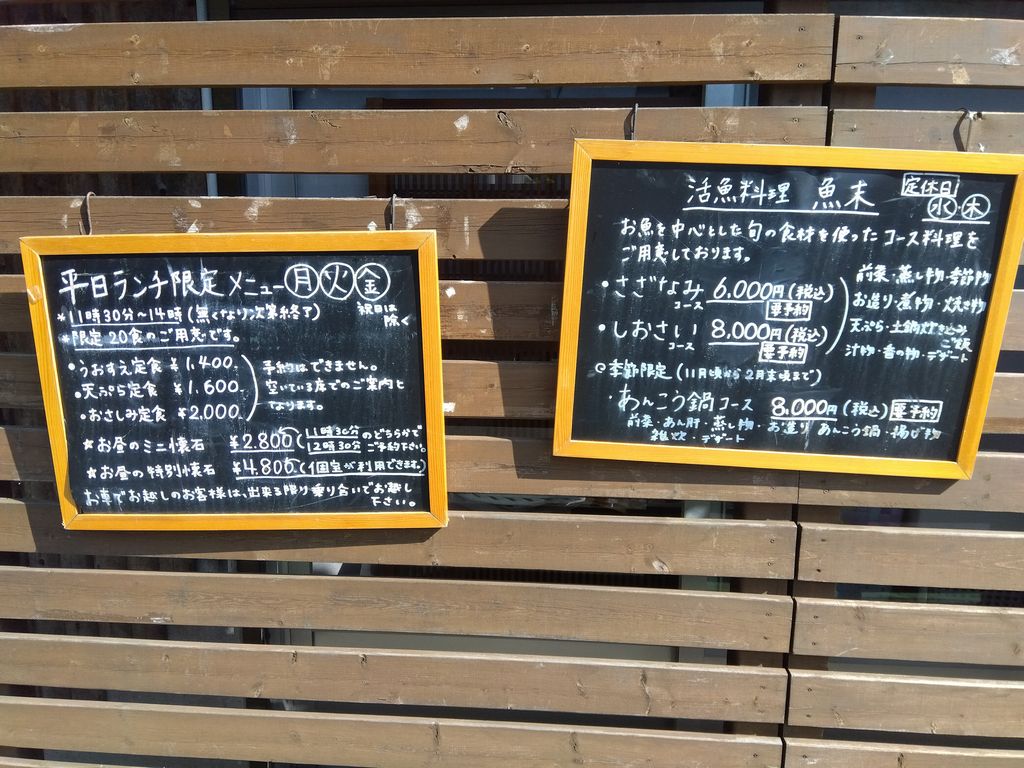 平日ランチ限定メニュー 月 火 金
*11時30分~14時(無くなり次第終了) 祝日は除く
*限定20食のご用意です。
・うおすえ定食 ¥1,400.
・天ぷら定食 ¥1,600.
・おさしみ定食 ¥2,000.
予約はできません。
空いている席でのご案内と
なります。
☆お昼のミニ懐石 ¥2,800.(11時30分 12時30分 のどちらかでご予約下さい。)
☆お昼の特別懐石 ¥4,800.(個室が利用できます。)
お車でお越しのお客様は、出来る限り乗り合いでお越し
下さい。
活魚料理 魚末
定休日
水・木
お魚を中心とした旬の食材を使ったコース料理を
ご用意しております。
・さざなみコース 6,000円(税込)
要予約
・しおさいコース 8,000円(税込)
要予約
前菜・蒸し物・季節物
お造り・煮物・焼き物
天ぷら・土鍋炊き込みご飯
汁物・香の物・デザート
◎季節限定(11月頃から2月末頃まで)
・あんこう鍋コース 8,000円(税込) 要予約
前菜・あん肝・蒸し物・お造り あんこう鍋・揚げ物
雑炊・デザート